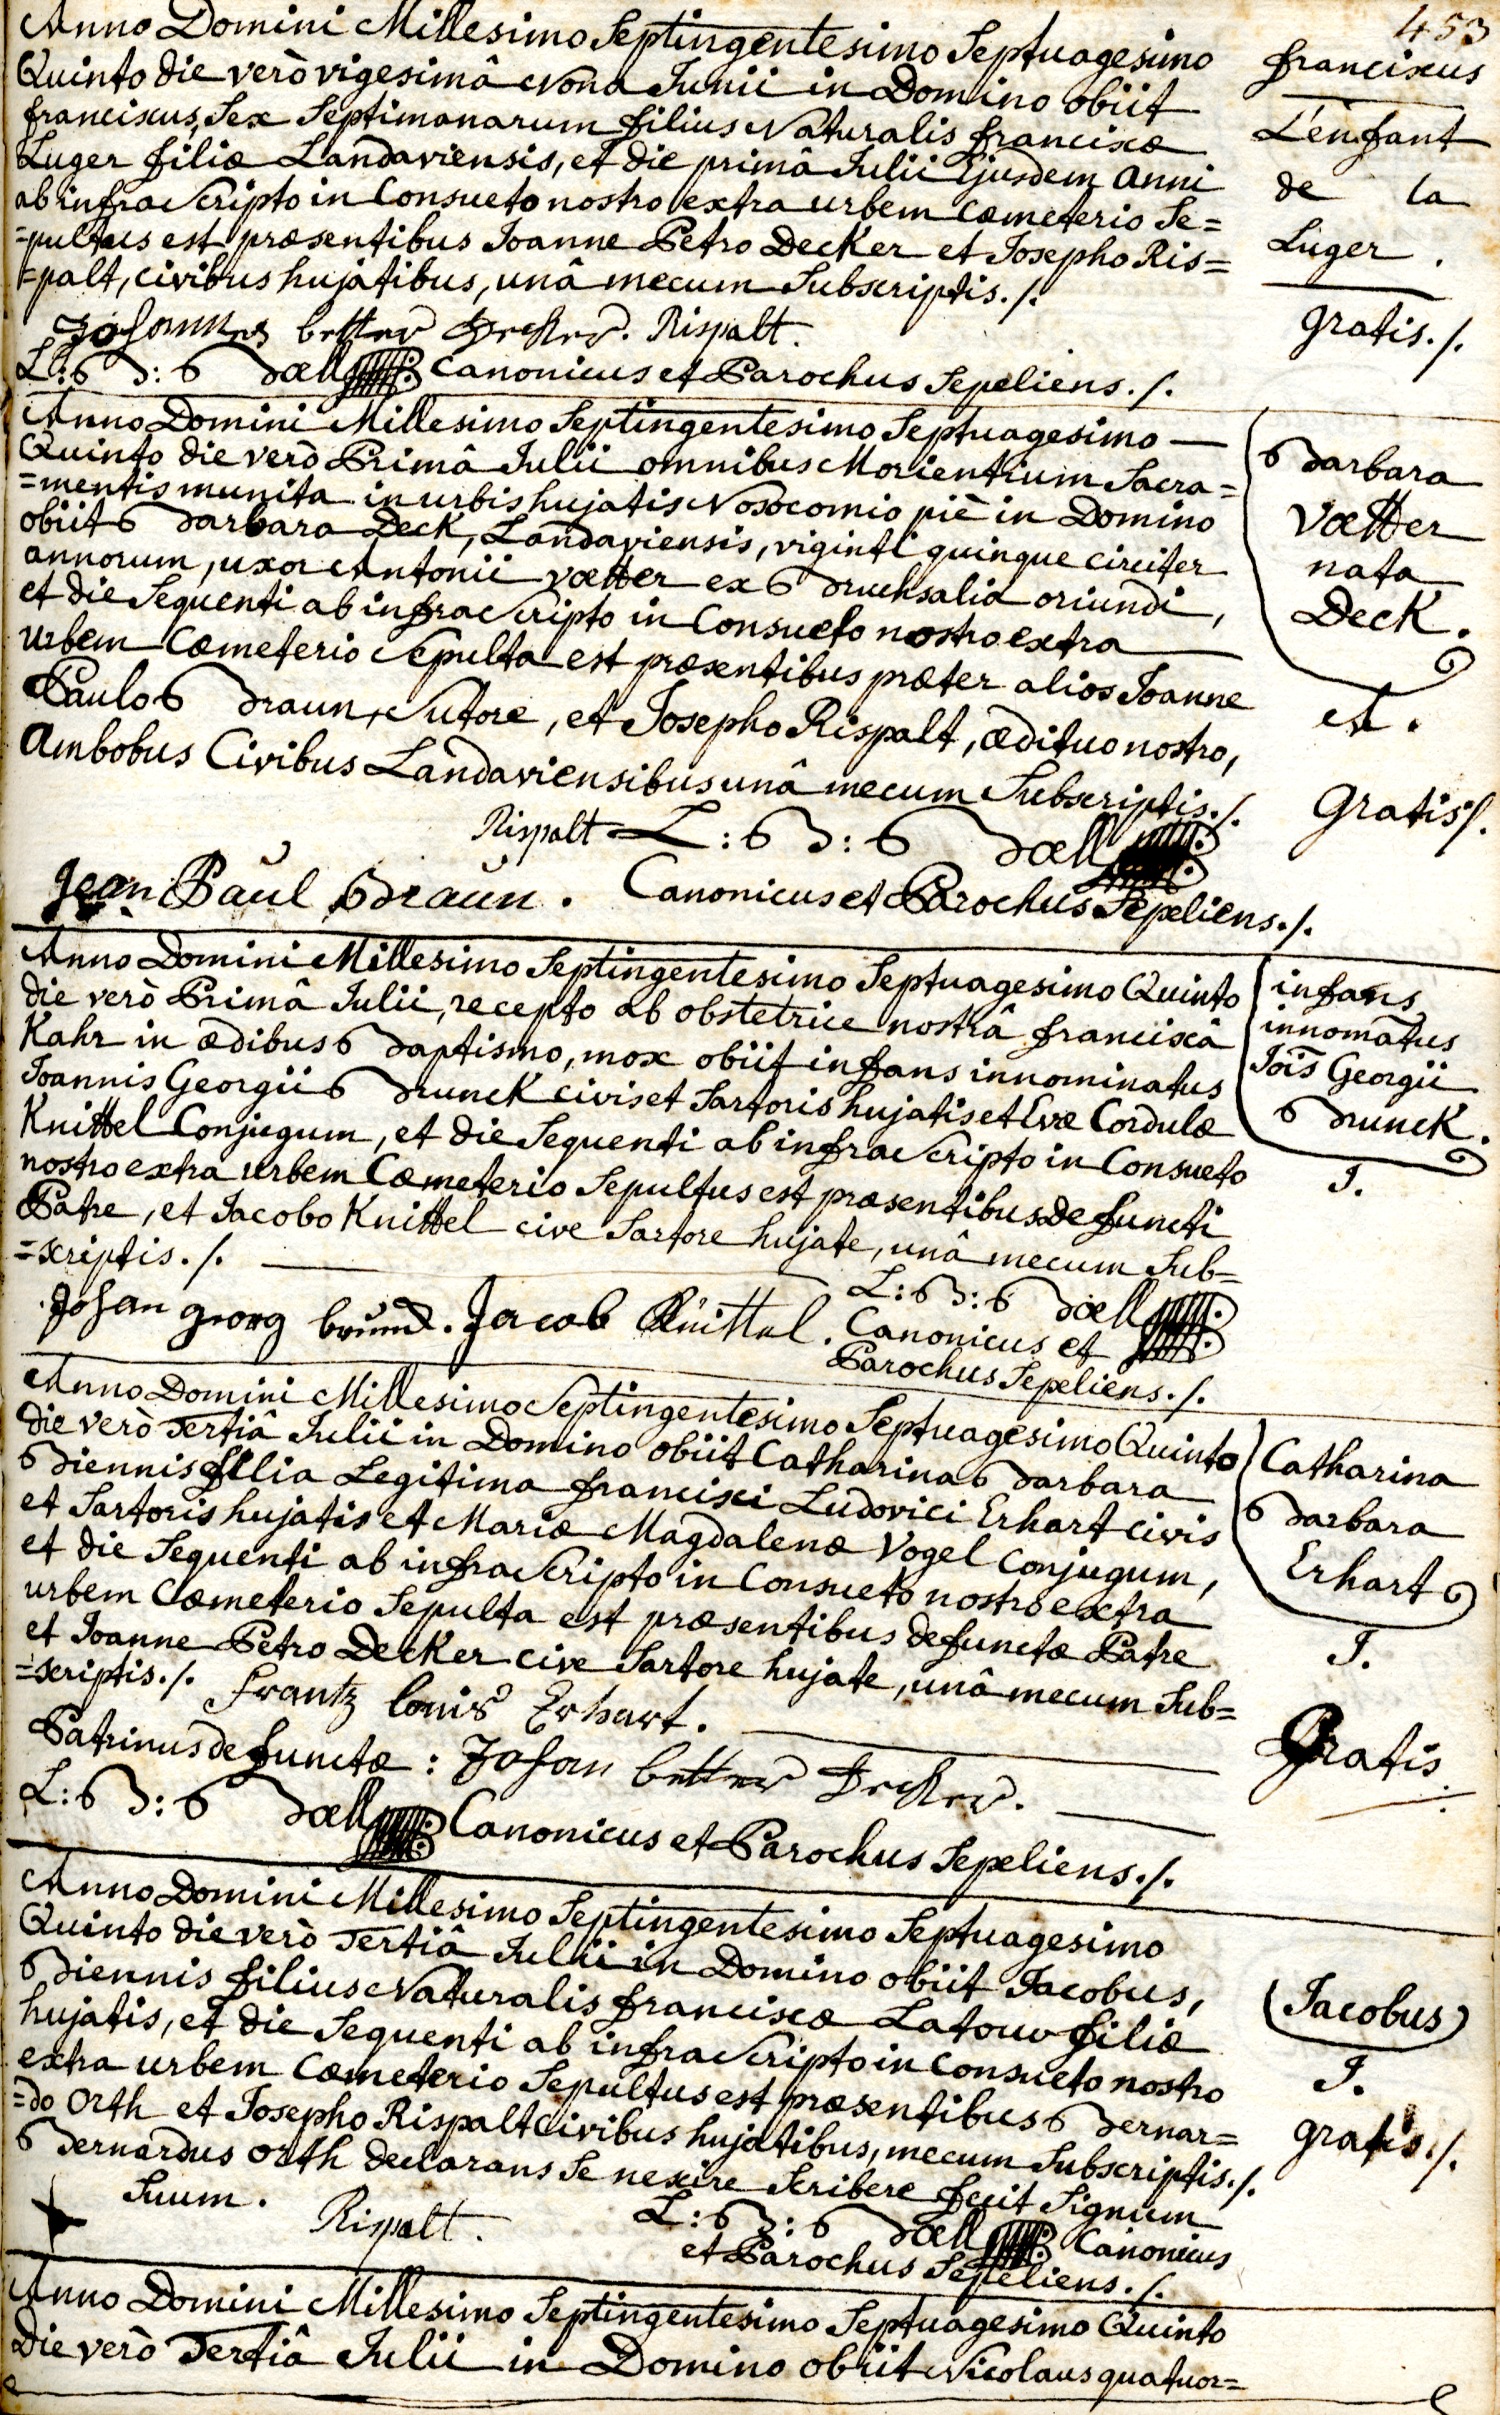 453
Anno Domini Millesimo Septingentesimo Septuagesimo
Quinto die verò vigesimâ Nonâ Junii in Domino obiit
franciscus, Sex Septimanarum filius Naturalis franciscæ
Luger filiæ Landaviensis, et die primâ Julii Ejusdem anni
ab infra Scripto in Consueto nostro extra urbem Cœmeterio Se=
=pultus est præsentibus Joanne Petro Decker et Josepho Ris=
=palt, civibus hujatibus, unâ mecum Subscriptis ./.
Johannes better Decker. Rispalt.
L: B: Bœll Canonicus et Parochus Sepeliens ./.
franciscus
L'enfant
de la
Luger.
gratis ./.
Anno Domini Millesimo Septingentesimo Septuagesimo
Quinto die verò Primâ Julii omnibus Morientium Sacra=
=mentis munita in urbis hujatis Nosocomio piè in Domino
obiit Barbara Deck, Landaviensis, viginti quinque circiter
annorum, uxor Antonii Vœtter ex Bruchsalia oriundi,
et die Sequenti ab infra Scripto in Consueto nostro extra
urbem Cœmeterio Sepulta est præsentibus præter alios Joanne
Paulo Braun, Sutore, et Josepho Rispalt, ædituo nostro,
Ambobus Civibus Landaviensibus unâ mecum Subscriptis ./.
Rispalt L: B: Bœll
Jean Paul Braun. Canonicus et Parochus Sepeliens ./.
Barbara
Vœtter
nata
Deck.
A.
Gratis ./.
Anno Domini Millesimo Septingentesimo Septuagesimo Quinto
die verò Primâ Julii, recepto ab obstetrice nostrâ franciscâ
Kahr in ædibus Baptismo, mox obiit infans innominatus
Joannis Georgii Brunck civis et Sartoris hujatis et Evæ Cordulæ
Knittel Conjugum, et die Sequenti ab infra Scripto in Consueto
nostro extra urbem Cœmeterio Sepultus est præsentibus defuncti
Patre, et Jacobo Knittel cive Sartore hujate, unâ mecum Sub=
=scriptis ./.
Johan georg Jacob Knittel. L: B: Bœll
Canonicus et
Parochus Sepeliens ./.
infans
innomatus
Jois Georgii
Brunck.
J.
Anno Domini Millesimo Septingentesimo Septuagesimo Quinto
die verò Tertiâ Julii in Domino obiit Catharina Barbara
Biennis filia Legitima francisci Ludovici Erhart civis
et Sartoris hujatis et Mariæ Magdalenæ Vogel Conjugum,
et die Sequenti ab infra Scripto in Consueto nostro extra
urbem Cœmeterio Sepulta est præsentibus defunctæ Patre
et Joanne Petro Decker cive Sartore hujate, unâ mecum Sub=
=scriptis ./. frantz louis Erhart.
Patrinus defunctæ: Johan better Decker.
L: B: Bœll Canonicus et Parochus Sepeliens ./.
Catharina
Barbara
Erhart
J.
Gratis
Anno Domini Millesimo Septingentesimo Septuagesimo
Quinto die verò Tertiâ Julii in Domino obiit Jacobus,
Biennis filius Naturalis franciscæ Latour filiæ
hujatis, et die Sequenti ab infra Scripto in Consueto nostro
extra urbem Cœmeterio Sepultus est præsentibus Bernar=
=do Orth et Josepho Rispalt civibus hujatibus, mecum Subscriptis ./.
Bernardus Orth declarans Se nescire Scribere fecit Signum
Suum.
Rispalt. L: B: Bœll Canonicus
et Parochus Sepeliens ./.
Jacobus
J.
gratis ./.
Anno Domini Millesimo Septingentesimo Septuagesimo Quinto
Die verò Tertiâ Julii in Domino obiit Nicolaus quatuor=